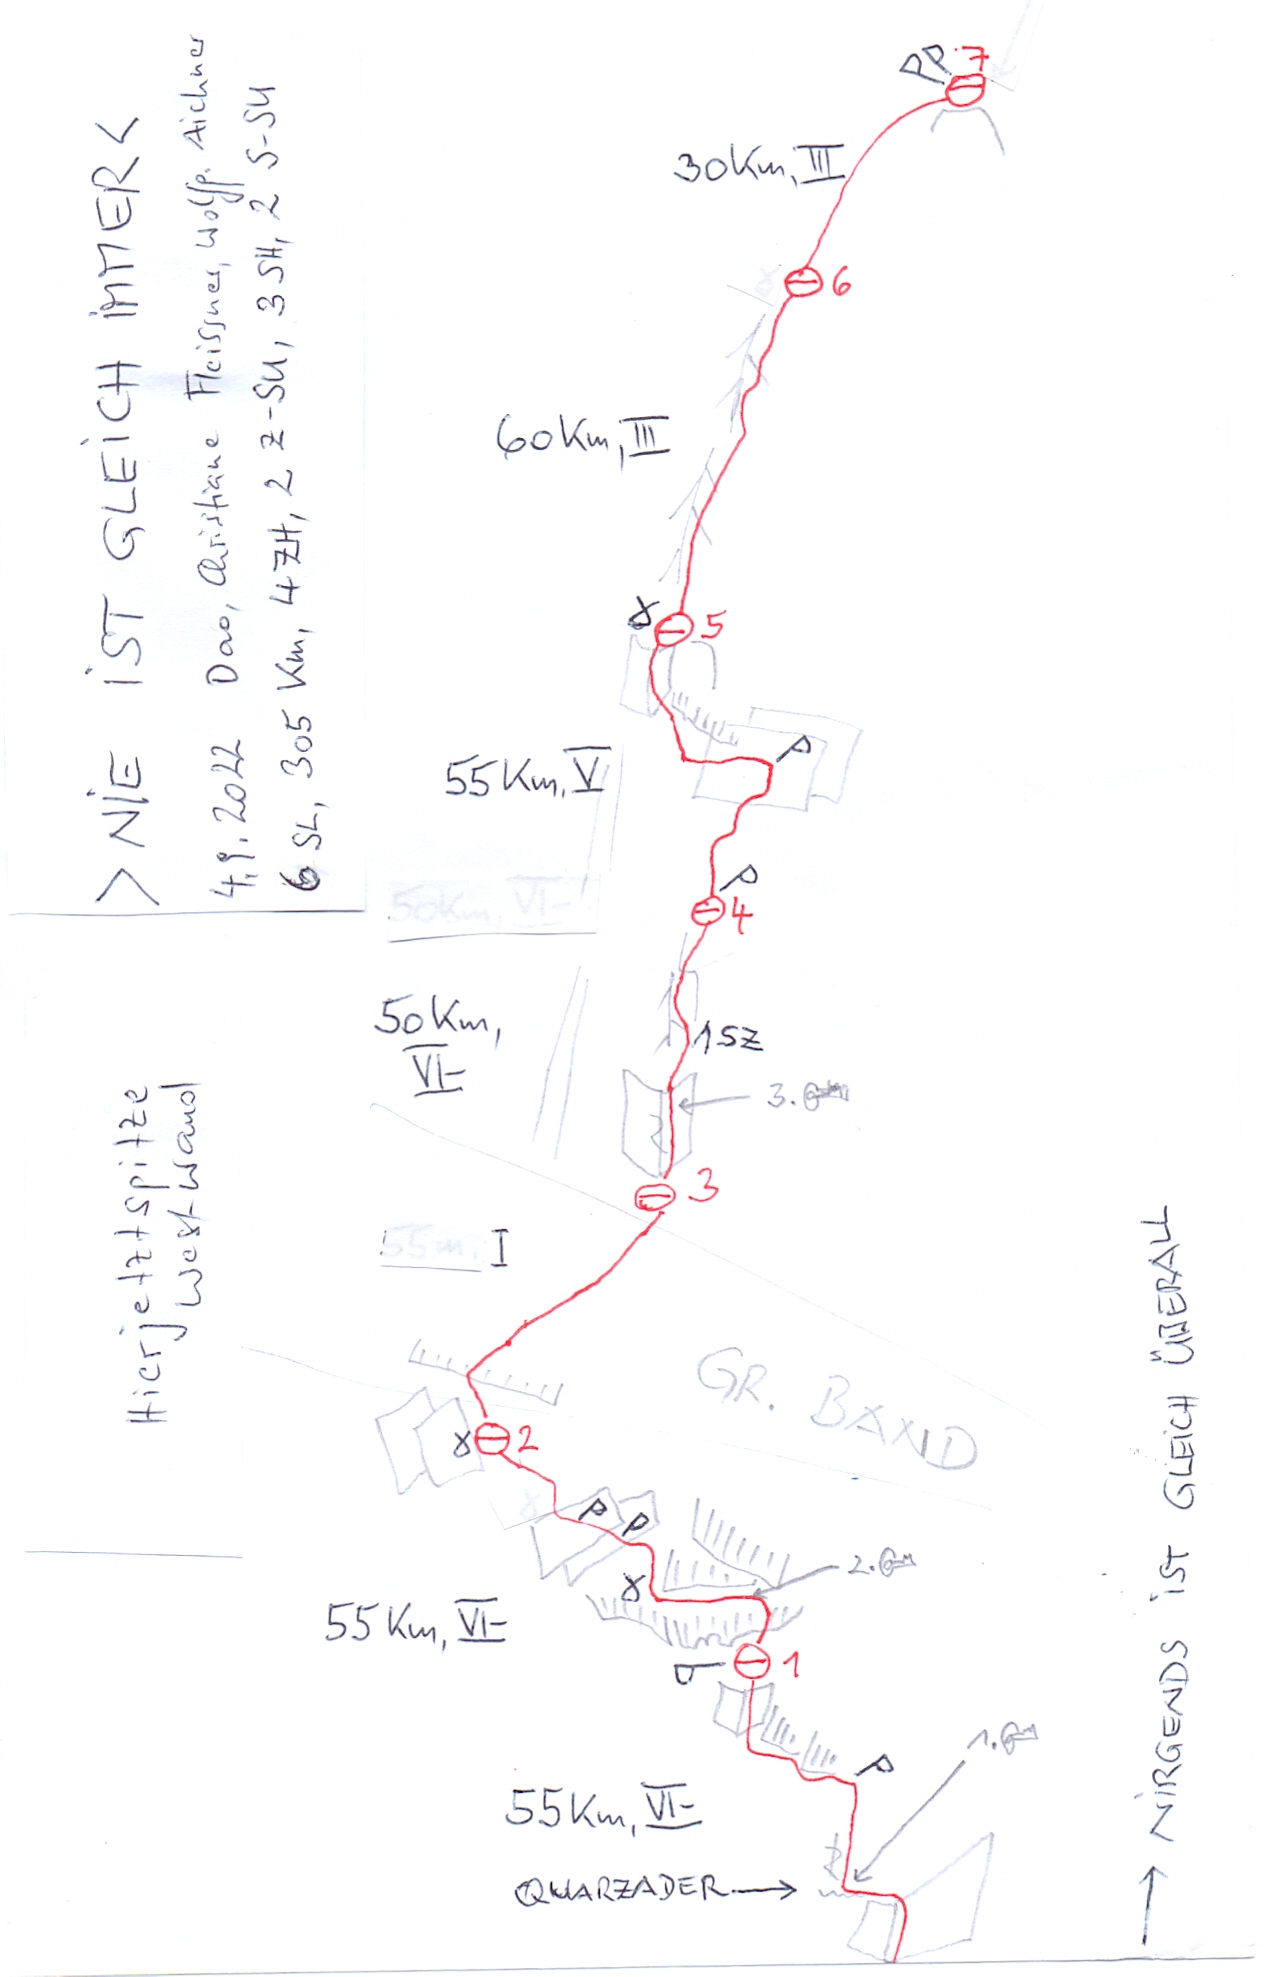 >NIE IST GLEICH IMMER<
4.9.2022 Dao, Christiane Fleissner, Wolfg. Aichner
6 SL, 305 Km, 4 ZH, 2 Z-SU, 3 SH, 2 S-SU
Hierjetztspitze
Westwand
PP 7
30 Km, III
6
60 Km, III
5
55 Km, V
P
P
4
50 Km, VI-
50 Km,
VI-
1 SZ
3.
3
55 m, I
GR. BAND
2
P P
2.
55 Km, VI-
1
1.
P
55 Km, VI-
QUARZADER →
→ NIRGENDS IST GLEICH ÜBERALL